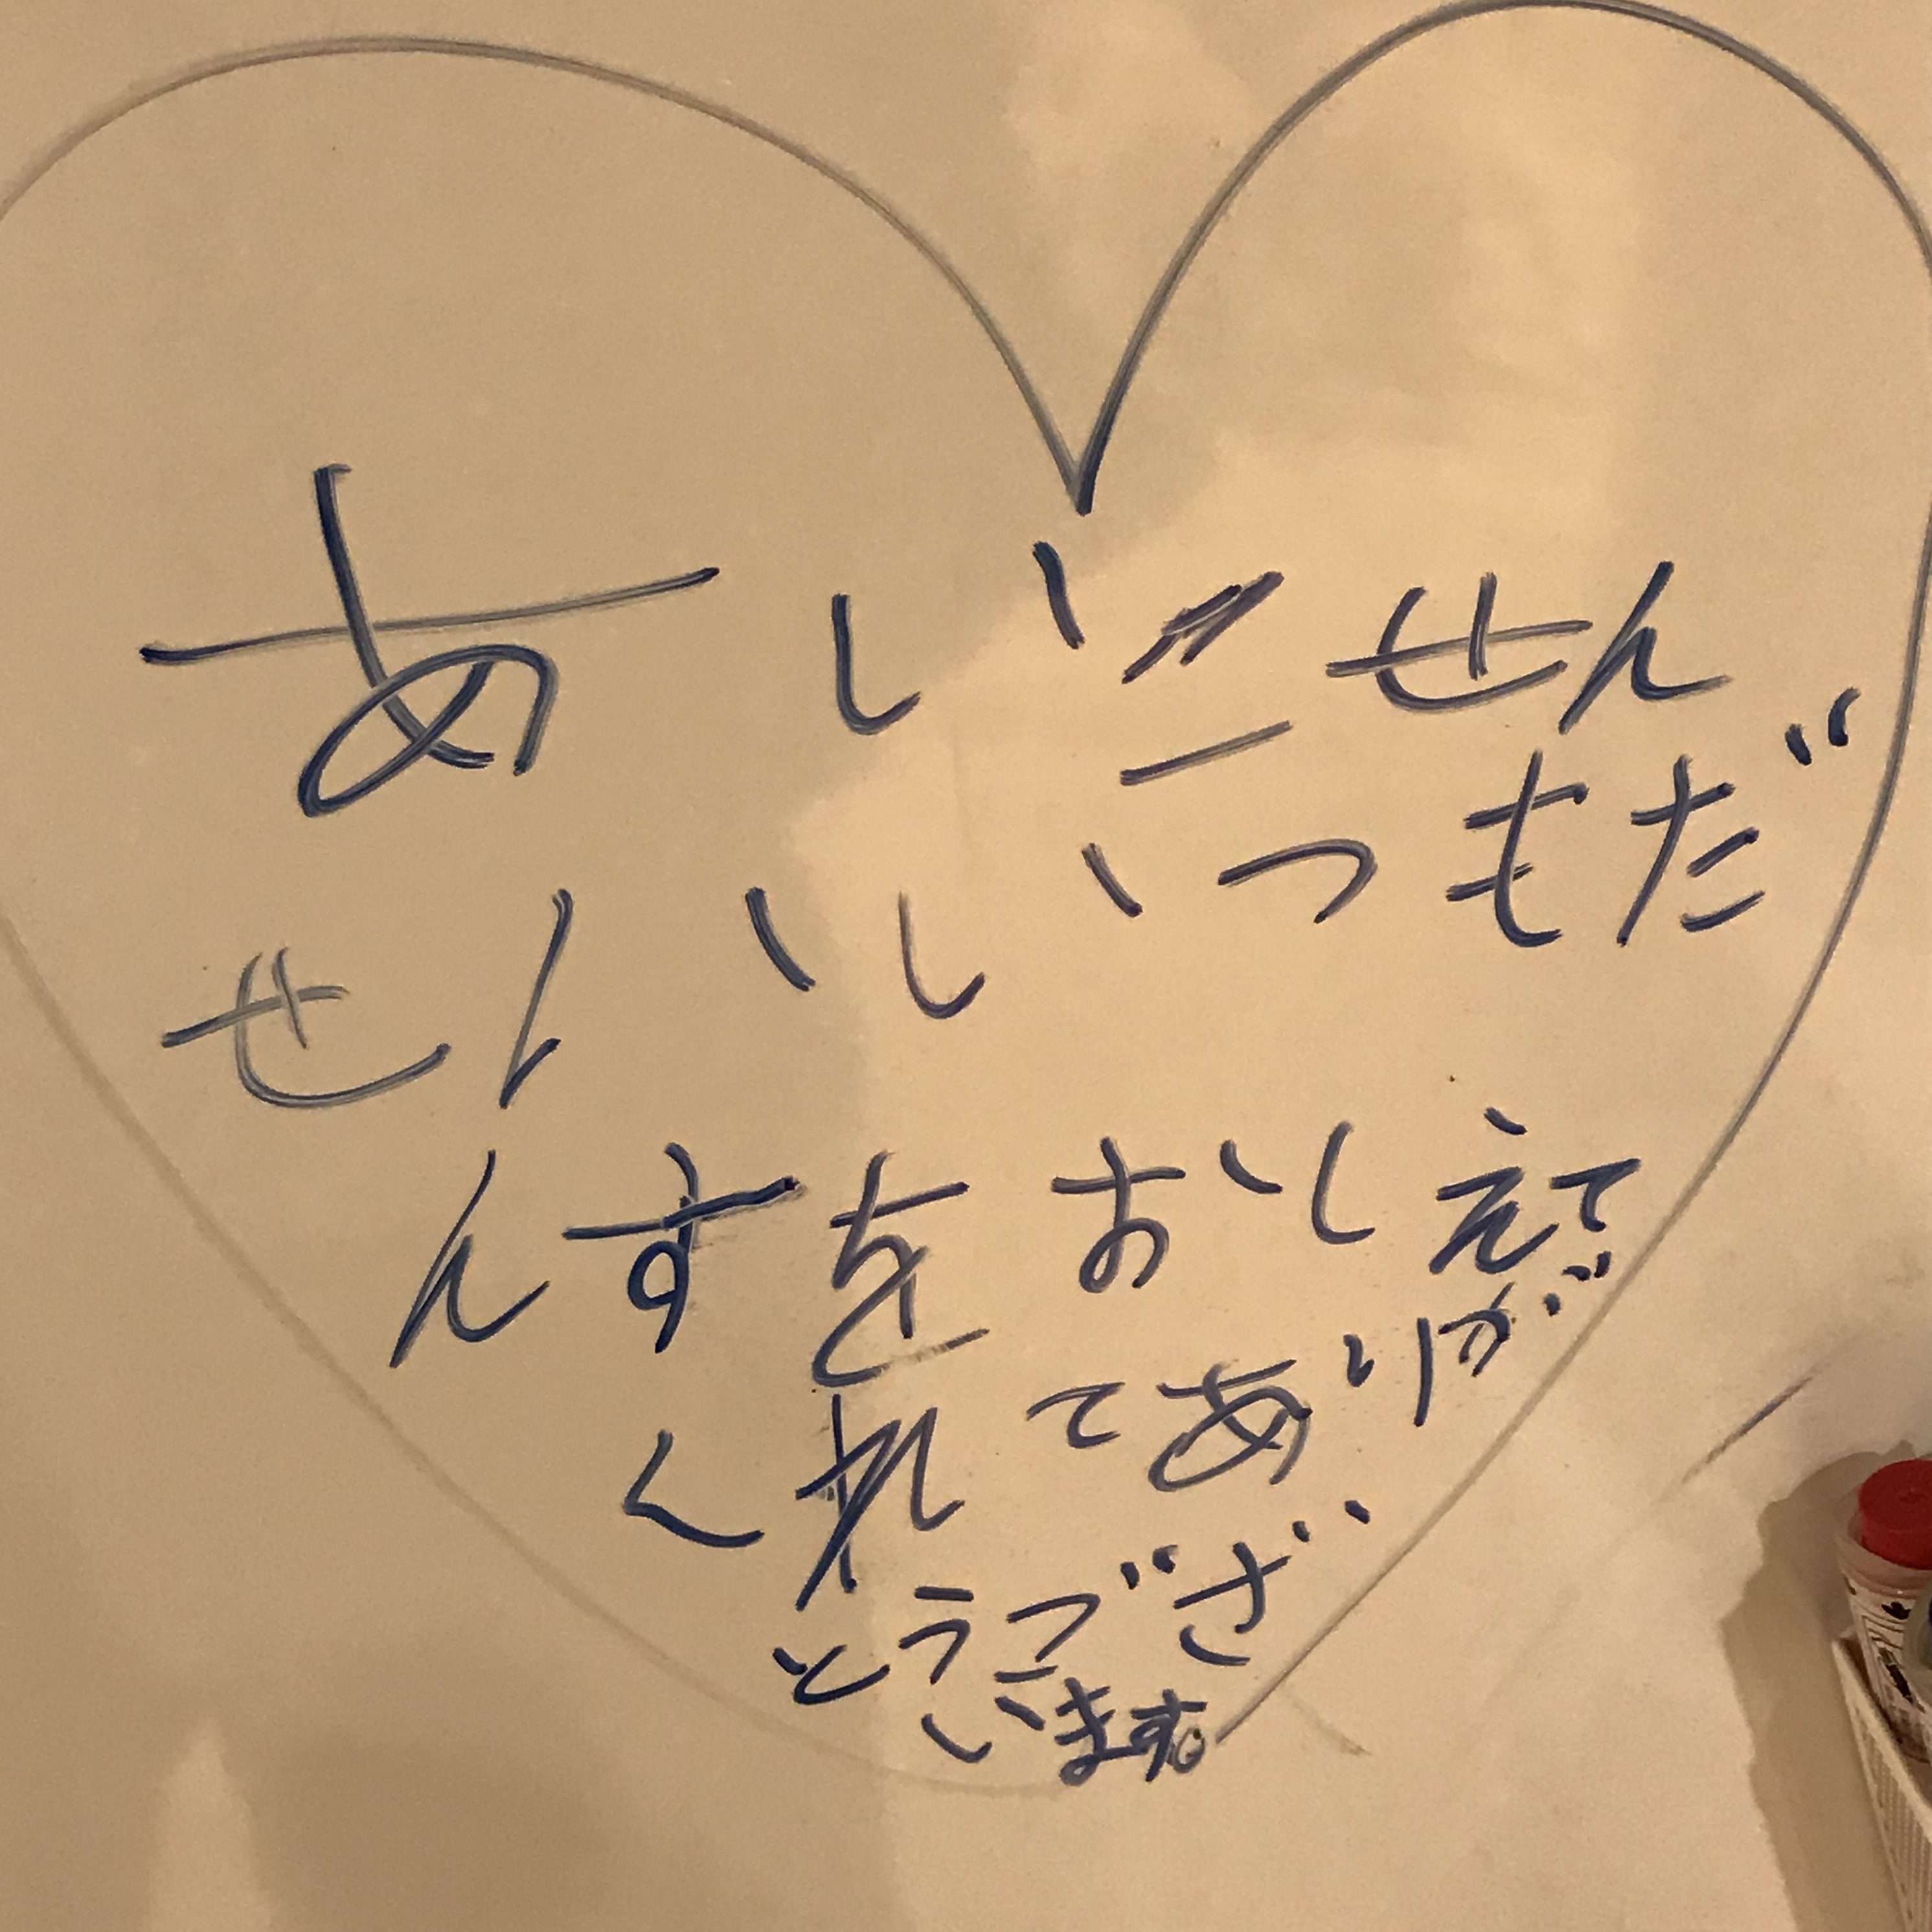 あいこせん
せいいつもだ
んすをおしえて
くれてありが
とうござ
います。